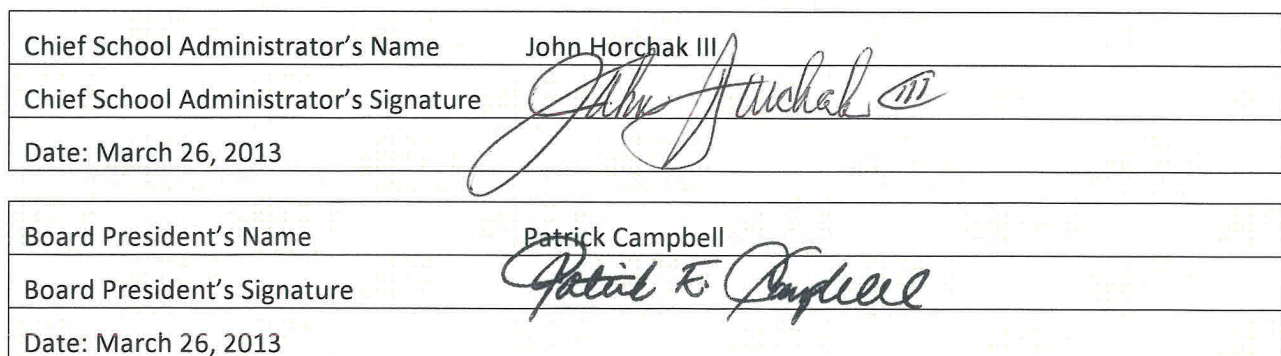 Chief School Administrator's Name John Horchak III
Chief School Administrator's Signature John Horchak III
Date: March 26, 2013
Board President's Name Patrick Campbell
Board President's Signature Patrick E. Campbell
Date: March 26, 2013